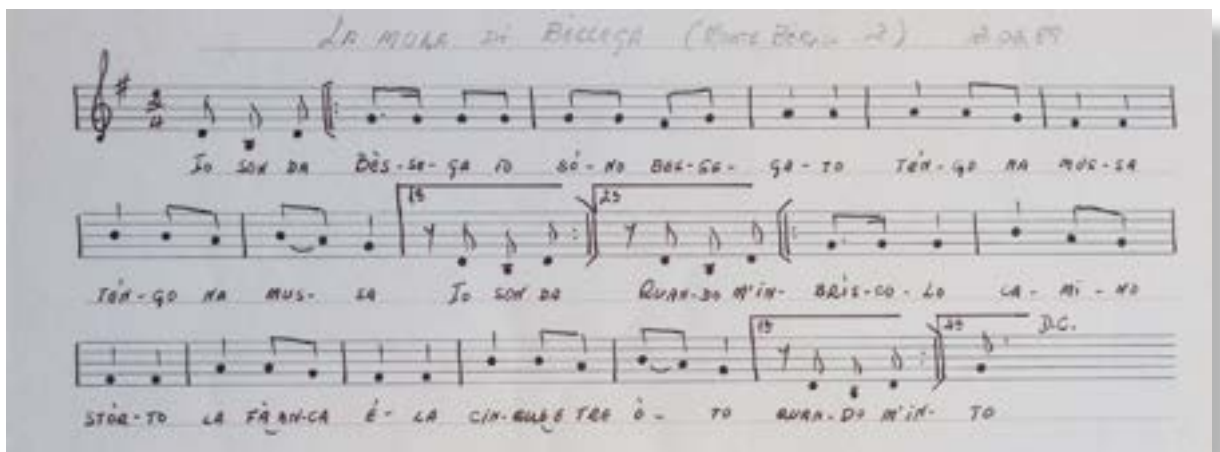 LA MORA DI BELLEGA (MONTE 2)
2/4
IO SON DA BÈS-SE-GA IO SÓ-NO BES-SE-GA-TO TÈN-GO NA MUS-SA
1ª 2ª
TÈN-GO NA MUS-SA IO SON DA QUAN-DO M'IN-BRÌS-CO-LO CA-MÌ-NO
1ª 2ª D.C.
STÒR-TO LA FRÀN-CA É-LA CIN-QUE E TRE Ò-TO QUAN-DO M'IN-TO